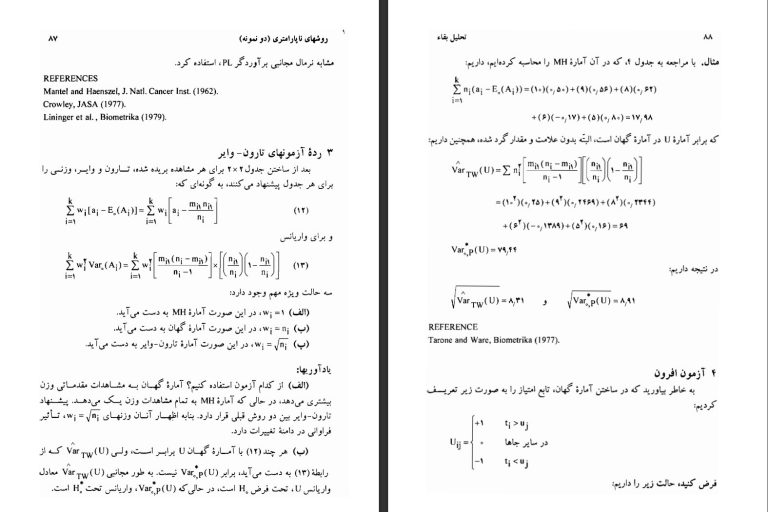 ۱
روشهای ناپارامتری (دو نمونه) ۸۷
مشابه نرمال مجانبی برآوردگر PL، استفاده کرد.
REFERENCES
Mantel and Haenszel, J. Natl. Cancer Inst. (1962).
Crowley, JASA (1977).
Lininger et al., Biometrika (1979).
۳ ردهٔ آزمونهای تارون- وایر
بعد از ساختن جدول ۲×۲ برای هر مشاهده بریده شده، تارون و وایر، وزنی را
برای هر جدول پیشنهاد می‌کنند، به گونه‌ای که:
∑_{i=۱}^{k} w_i[a_i − E_۰(A_i)] = ∑_{i=۱}^{k} w_i[a_i − m_{i۱}n_{i۱}/n_i] (۱۲)
و برای واریانس
∑_{i=۱}^{k} w_i^۲ Var_۰(A_i) = ∑_{i=۱}^{k} w_i^۲[m_{i۱}(n_i − m_{i۱})/(n_i − ۱)] × [(n_{i۱}/n_i)(۱ − n_{i۱}/n_i)] (۱۳)
سه حالت ویژه مهم وجود دارد:
(الف) w_i = ۱، در این صورت آمارهٔ MH به دست می‌آید.
(ب) w_i = n_i، در این صورت آمارهٔ گهان به دست می‌آید.
(پ) w_i = √n_i، در این صورت آمارهٔ تارون-وایر به دست می‌آید.
یادآوریها:
(الف) از کدام آزمون استفاده کنیم؟ آمارهٔ گهان به مشاهدات مقدماتی وزن
بیشتری می‌دهد، در حالی که آمارهٔ MH به تمام مشاهدات وزن یک می‌دهد. پیشنهاد
تارون-وایر بین دو روش قبلی قرار دارد. بنابه اظهار آنان وزنهای w_i = √n_i، تأثیر
فراوانی در دامنهٔ تغییرات دارد.
(ب) هر چند (۱۲) با آمارهٔ گهان U برابر است، ولی Var̂_TW(U) که از
رابطهٔ (۱۳) به دست می‌آید، برابر Var*_{۰,P}(U) نیست. به طور مجانبی Var̂_TW(U) معادل
واریانس U، تحت فرض H_۰ است، در حالی‌که Var*_{۰,P}(U)، واریانس تحت H*_۰ است.
تحلیل بقاء ۸۸
مثال. با مراجعه به جدول ۴، که در آن آمارهٔ MH را محاسبه کرده‌ایم، داریم:
∑_{i=۱}^{k} n_i(a_i − E_۰(A_i)) = (۱۰)(۰٫۵۰)+(۹)(۰٫۵۶)+(۸)(۰٫۶۲)
+(۶)(−۰٫۱۷)+(۵)(۰٫۸۰)=۱۷٫۹۸
که برابر آمارهٔ U در آمارهٔ گهان است، البتّه بدون علامت و مقدار گرد شده، همچنین داریم:
Var̂_TW(U) = ∑ n_i^۲[m_{i۱}(n_i − m_{i۱})/(n_i − ۱)][(n_{i۱}/n_i)(۱ − n_{i۱}/n_i)]
=(۱۰^۲)(۰٫۲۵)+(۹^۲)(۰٫۲۴۶۹)+(۸^۲)(۰٫۲۳۴۴)
+(۶^۲)(−۰٫۱۳۸۹)+(۵^۲)(۰٫۱۶)=۶۹
Var*_{۰,P}(U) = ۷۹٫۴۴
در نتیجه داریم:
√Var̂_TW(U) = ۸٫۳۱ و √Var*_{۰,P}(U) = ۸٫۹۱
REFERENCE
Tarone and Ware, Biometrika (1977).
۴ آزمون افرون
به خاطر بیاورید که در ساختن آمارهٔ گهان، تابع امتیاز را به صورت زیر تعریف
کردیم:
+۱ t_i > u_j
U_ij = ۰ در سایر جاها
−۱ t_i < u_j
فرض کنید، حالت زیر را داریم: